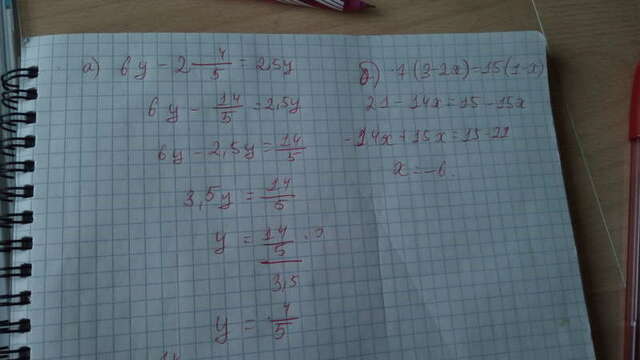 а) 6y - 2 4/5 = 2,5y
6y - 14/5 = 2,5y
6y - 2,5y = 14/5
3,5y = 14/5
y = 14/5 / 3,5
y = 4/5
б) -7(3-2x)=15(1-x)
21-14x=15-15x
-14x+15x=15-21
x=-6.